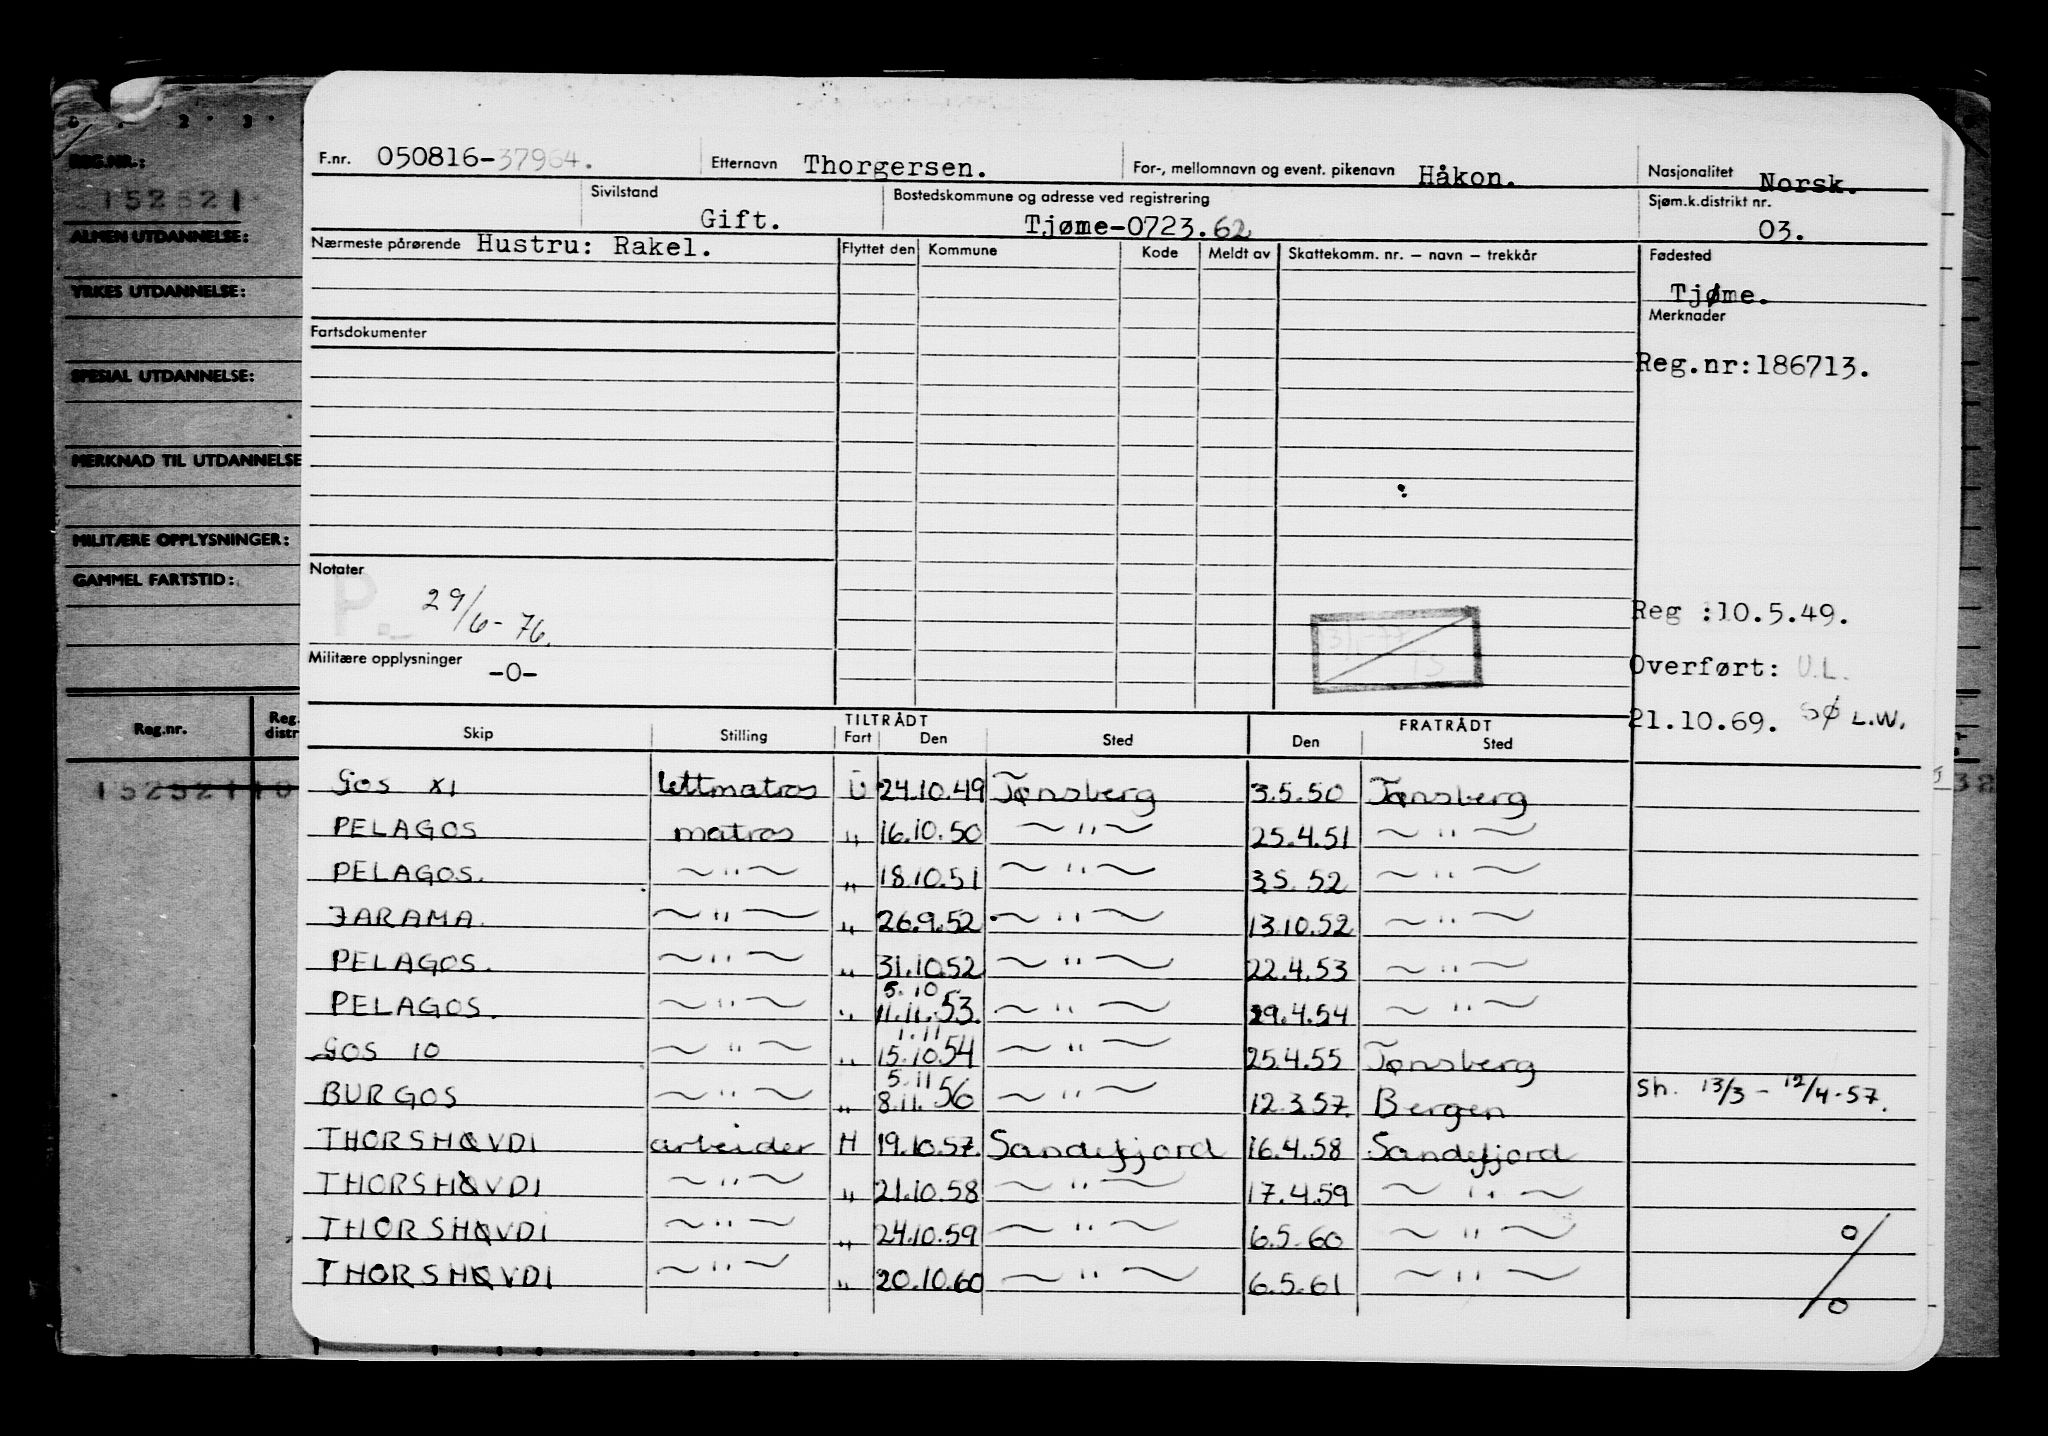 REG.NR.:
152521
ALMEN UTDANNELSE:
YRKES UTDANNELSE:
SPESIAL UTDANNELSE:
MERKNAD TIL UTDANNELSE
MILITÆRE OPPLYSNINGER:
GAMMEL FARTSTID:
Reg.nr. Reg. distr
15252110
F.nr. 050816-37964. Etternavn Thorgersen. For-, mellomnavn og event. pikenavn Håkon. Nasjonalitet Norsk.
Sivilstand Gift. Bostedskommune og adresse ved registrering Tjøme-0723.62 Sjøm.k.distrikt nr. 03.
Nærmeste pårørende Hustru: Rakel. Flyttet den Kommune Kode Meldt av Skattekomm. nr. – navn – trekkår Fødested
Tjøme.
Fartsdokumenter Merknader
Reg.nr:186713.
Notater
29/6-76.
P.
Reg :10.5.49.
Militære opplysninger -0- Overført: U.L.
21.10.69. SØ L.W.
TILTRÅDT FRATRÅDT
Skip Stilling Fart Den Sted Den Sted
GOS XI lettmatros U 24.10.49 Tønsberg 3.5.50 Tønsberg
PELAGOS matros " 16.10.50 ~"~ 25.4.51 ~"~
PELAGOS. ~"~ " 18.10.51 ~"~ 3.5.52 ~"~
JARAMA. ~"~ " 26.9.52 ~"~ 13.10.52 ~"~
PELAGOS. ~"~ " 31.10.52 ~"~ 22.4.53 ~"~
5.10
PELAGOS. ~"~ " 11.11.53 ~"~ 29.4.54 ~"~
1.11
GOS 10 ~"~ " 15.10.54 ~"~ 25.4.55 Tønsberg
5.11
BURGOS ~"~ " 8.11.56 ~"~ 12.3.57. Bergen sh. 13/3 - 12/4-57.
THORSHØVDI arbeider H 19.10.57. Sandefjord 16.4.58 Sandefjord
THORSHØVDI ~"~ " 21.10.58 ~"~ 17.4.59 ~"~
THORSHØVDI ~"~ " 24.10.59 ~"~ 6.5.60 ~"~
THORSHØVDI ~"~ " 20.10.60 ~"~ 6.5.61 ~"~
o/o